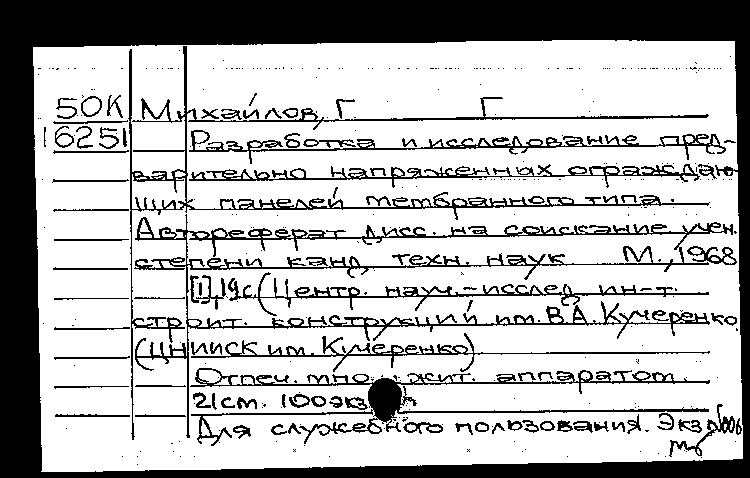 50К Михайлов, Г Г
16251 Разработка и исследование пред-
варительно напряженных ограждаю
щих панелей мембранного типа.
Автореферат дисс. на соискание учен.
степени канд. техн. наук М., 1968
[1], 19с. (Центр. науч.-исслед. ин-т.
строит. конструкций им. В.А. Кучеренко
(ЦНИИСК им. Кучеренко)
Отпеч. множит. аппаратом.
21см. 100экз
Для служебного пользования. Экз №006